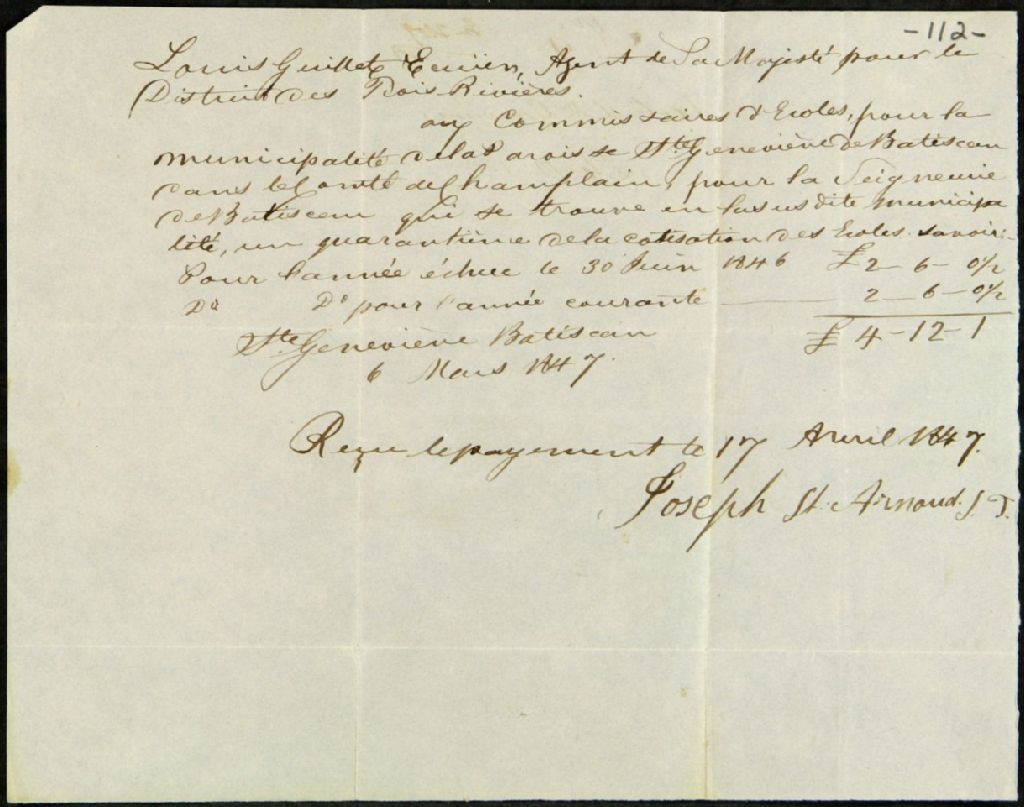 -112-
Louis Guillet Ecuier, Agent de Sa Majesté pour le
District des Trois Rivières.
aux Commissaires d'Ecoles, pour la
municipalité de la Paroisse Ste Geneviève de Batiscan
dans le Comté de Champlain, pour la Seigneurie
de Batiscan qui se trouve en la susdite municipa
lité, un quarantième de la cotisation des Ecoles. Savoir:-
Pour l'année échue le 30 Juin 1846 £ 2 - 6 - 0½
Do Do pour l'année courante 2 - 6 - 0½
£ 4 - 12 - 1
Ste Geneviève Batiscan
6 Mars 1847.
Reçu le payement le 17 Avril 1847.
Joseph St. Arnaud. S. T.